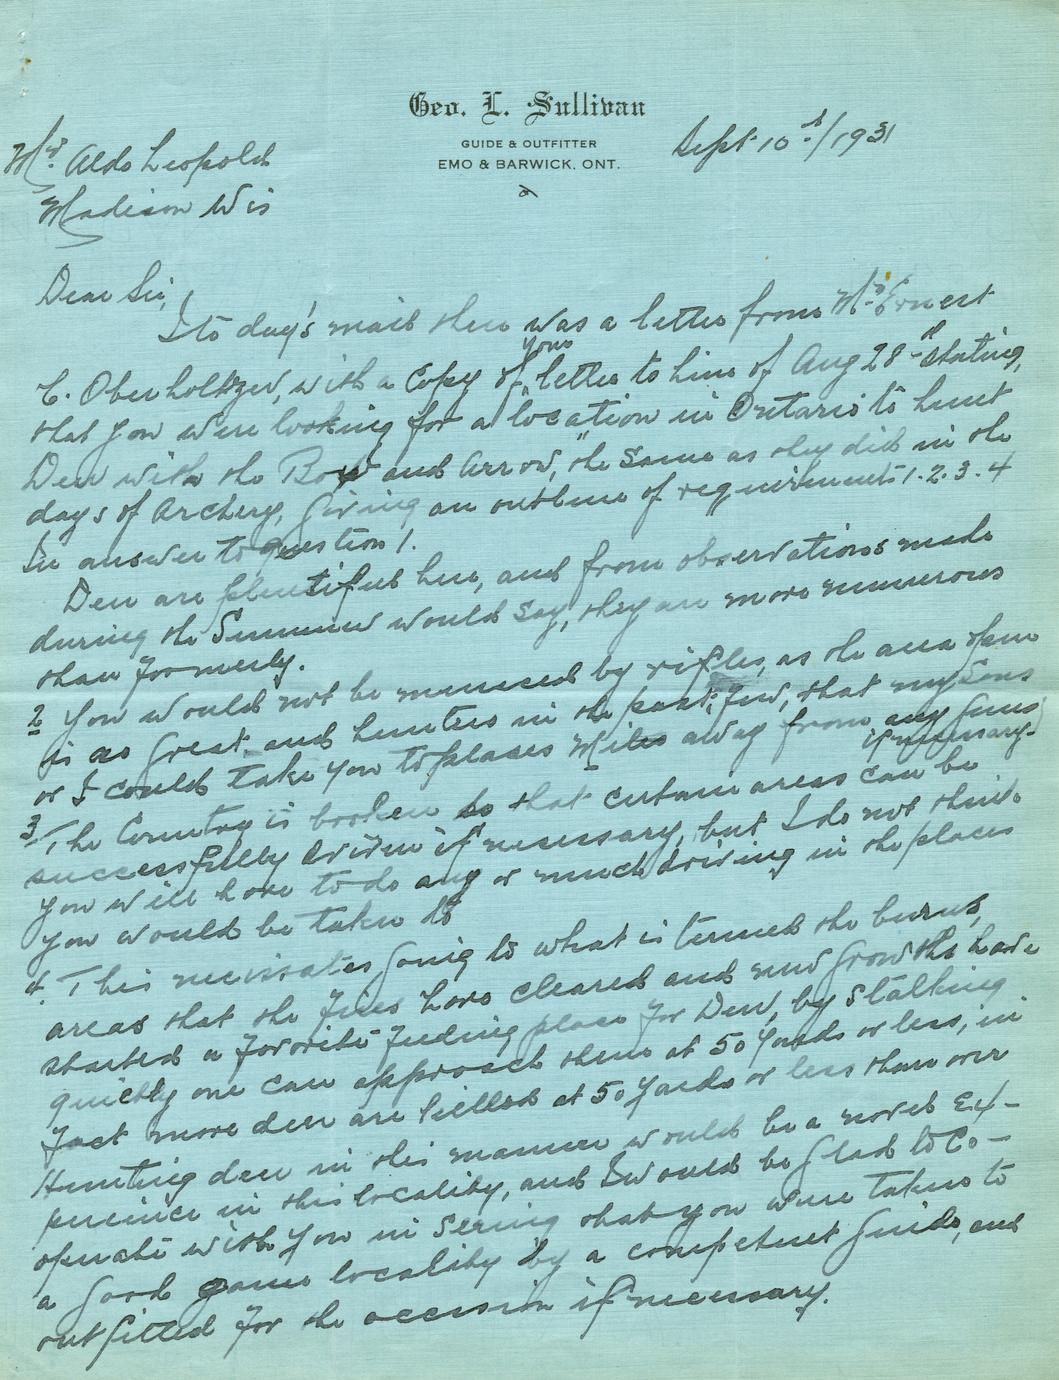 Geo. L. Sullivan
GUIDE & OUTFITTER
EMO & BARWICK, ONT.
Sept 10th/1931
Mr. Aldo Leopold
Madison Wis
Dear Sir,
I to day's mail there was a letter from Mr. Ernest
C. Oberholtzer, with a Copy of your letter to him of Aug 28th stating,
that you were looking for a location in Ontario to hunt
Deer with the Bow and Arrow, the same as they did in the
days of Archery, Giving an outline of requirements 1.2.3.4
In answer to question 1.
Deer are plentiful here, and from observations made
during the Summer would say, they are more numerous
than formerly.
2 You would not be menaced by rifles, as the area open
is so great, and hunters in the past, few, that my Sons
or I could take you to places Miles away from any Guns
if necessary.
3. The Country is broken so that certain areas can be
successfully driven if necessary, but I do not think
you will have to do any or much driving in the places
you would be taken to
4. This necissates going to what is termed the burns,
areas that the fires have cleared and new growths have
started a favorite feeding place for Deer, by stalking
quietly one can approach them at 50 yards or less, in
fact more deer are killed at 50 yards or less than over
Hunting deer in this manner would be a novel Ex-
perience in this locality, and I would be glad to Co-
operate with you in seeing that you were taken to
a good game locality by a competent Guide, and
outfitted for the occasion if necessary.